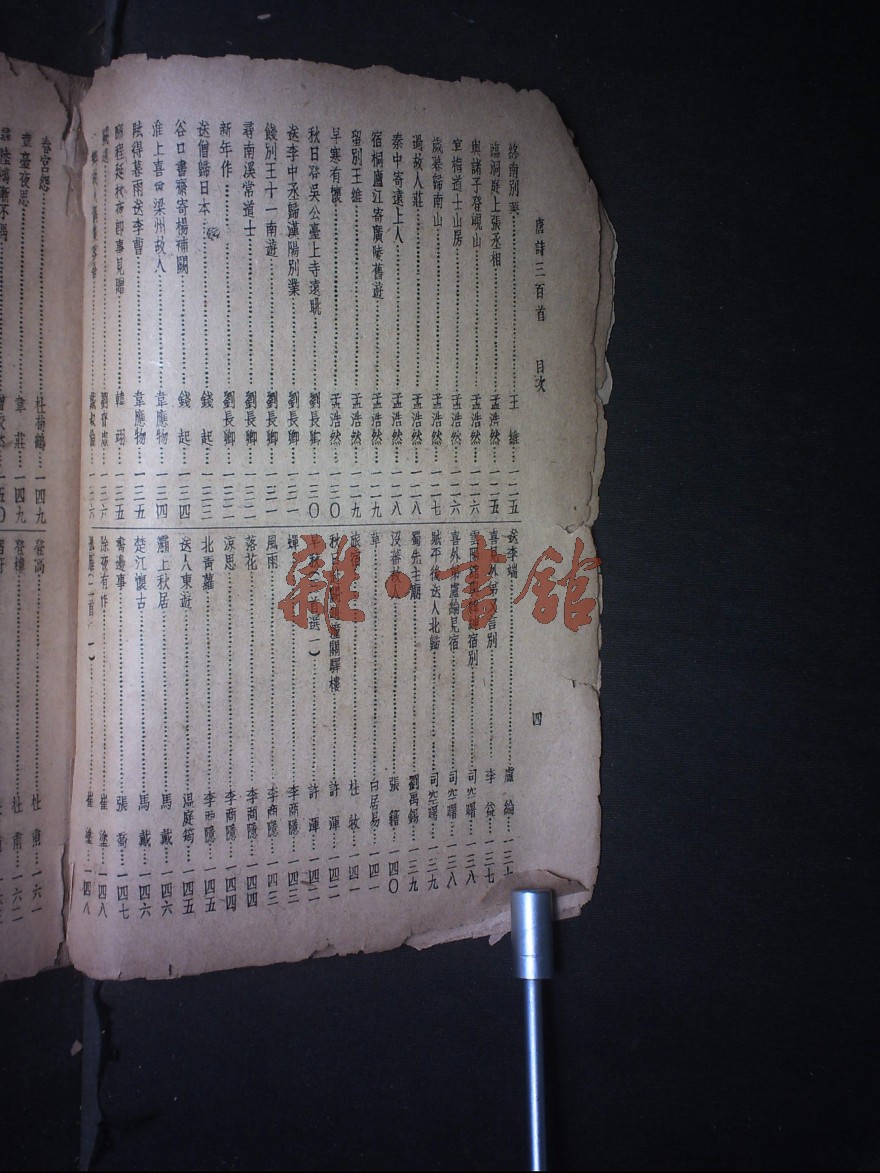 唐詩三百首 目次 四
終南別業 王維 一二五
臨洞庭上張丞相 孟浩然 一二五
與諸子登峴山 孟浩然 一二六
宴梅道士山房 孟浩然 一二六
歲暮歸南山 孟浩然 一二七
過故人莊 孟浩然 一二八
秦中寄遠上人 孟浩然 一二八
宿桐廬江寄廣陵舊遊 孟浩然 一二九
留別王維 孟浩然 一二九
早寒有懷 孟浩然 一三〇
秋日登吳公臺上寺遠眺 劉長卿 一三〇
送李中丞歸漢陽別業 劉長卿 一三一
餞別王十一南遊 劉長卿 一三一
尋南溪常道士 劉長卿 一三二
新年作 劉長卿 一三二
送僧歸日本 錢起 一三三
谷口書齋寄楊補闕 錢起 一三四
淮上喜會梁州故人 韋應物 一三四
賦得暮雨送李曹 韋應物 一三五
酬程延秋夜即事見贈 韓翃 一三五
劉眘虛 一三六
一三六
送李端 盧綸 一三七
喜見外弟又言別 李益 一三七
宿別 司空曙 一三八
喜外弟盧綸見宿 司空曙 一三八
賊平後送人北歸 司空曙 一三九
蜀先主廟 劉禹錫 一三九
沒蕃故人 張籍 一四〇
草 白居易 一四一
旅宿 杜牧 一四一
秋日 潼關驛樓 許渾 一四二
早秋 許渾 一四二
蟬 李商隱 一四三
風雨 李商隱 一四三
落花 李商隱 一四四
涼思 李商隱 一四四
北青蘿 李商隱 一四五
送人東遊 溫庭筠 一四五
灞上秋居 馬戴 一四六
楚江懷古 馬戴 一四六
書邊事 張喬 一四七
除夜有作 崔塗 一四八
崔塗 一四八
春宮怨 杜荀鶴 一四九
章臺夜思 韋莊 一四九
尋陸鴻漸不遇 一五〇
登高 杜甫 一六一
登樓 杜甫 一六二
雜·書館